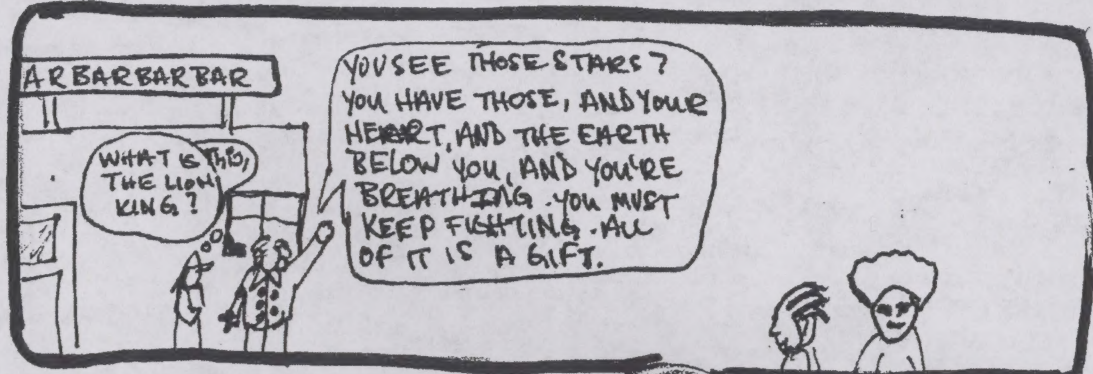 ARBARBARBAR
WHAT IS THIS,
THE LION
KING?
YOU SEE THOSE STARS?
YOU HAVE THOSE, AND YOUR
HEART, AND THE EARTH
BELOW YOU, AND YOU'RE
BREATHING. YOU MUST
KEEP FIGHTING. ALL
OF IT IS A GIFT.